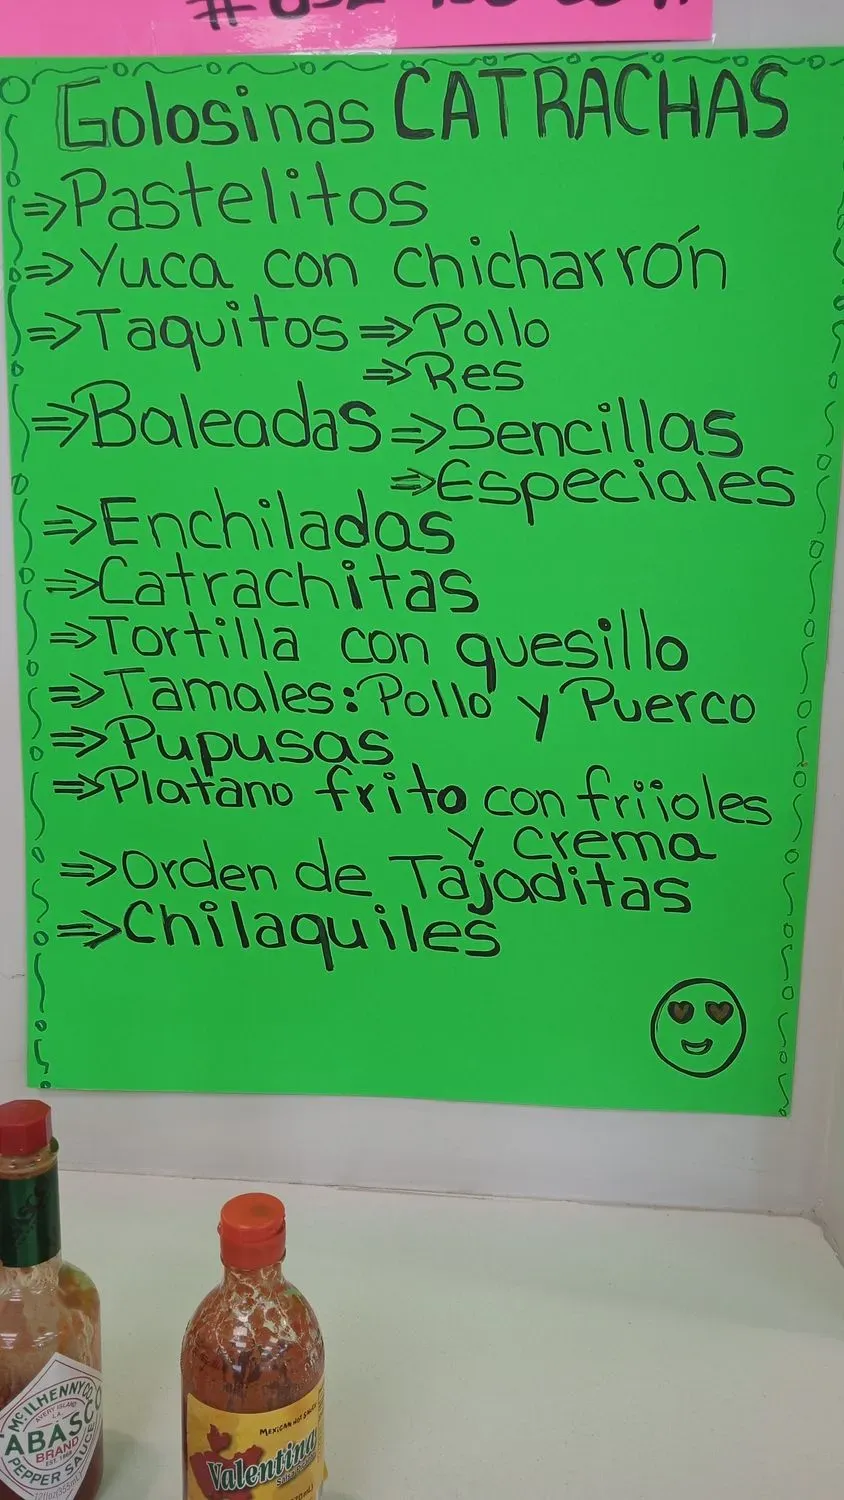 Golosinas CATRACHAS
⇒Pastelitos
⇒Yuca con chicharrón
⇒Taquitos ⇒Pollo
⇒Res
⇒Baleadas ⇒Sencillas
⇒Especiales
⇒Enchiladas
⇒Catrachitas
⇒Tortilla con quesillo
⇒Tamales: Pollo y Puerco
⇒Pupusas
⇒Platano frito con frijoles
y crema
⇒Orden de Tajaditas
⇒Chilaquiles
McILHENNY CO.
AVERY ISLAND
LA.
TABASCO
BRAND
EST. 1868
PEPPER SAUCE
MEXICAN HOT SAUCE
Valentina